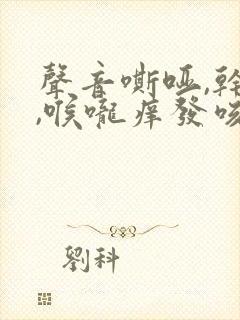 聲音嘶啞,幹
,喉嚨痒發咳
劉科